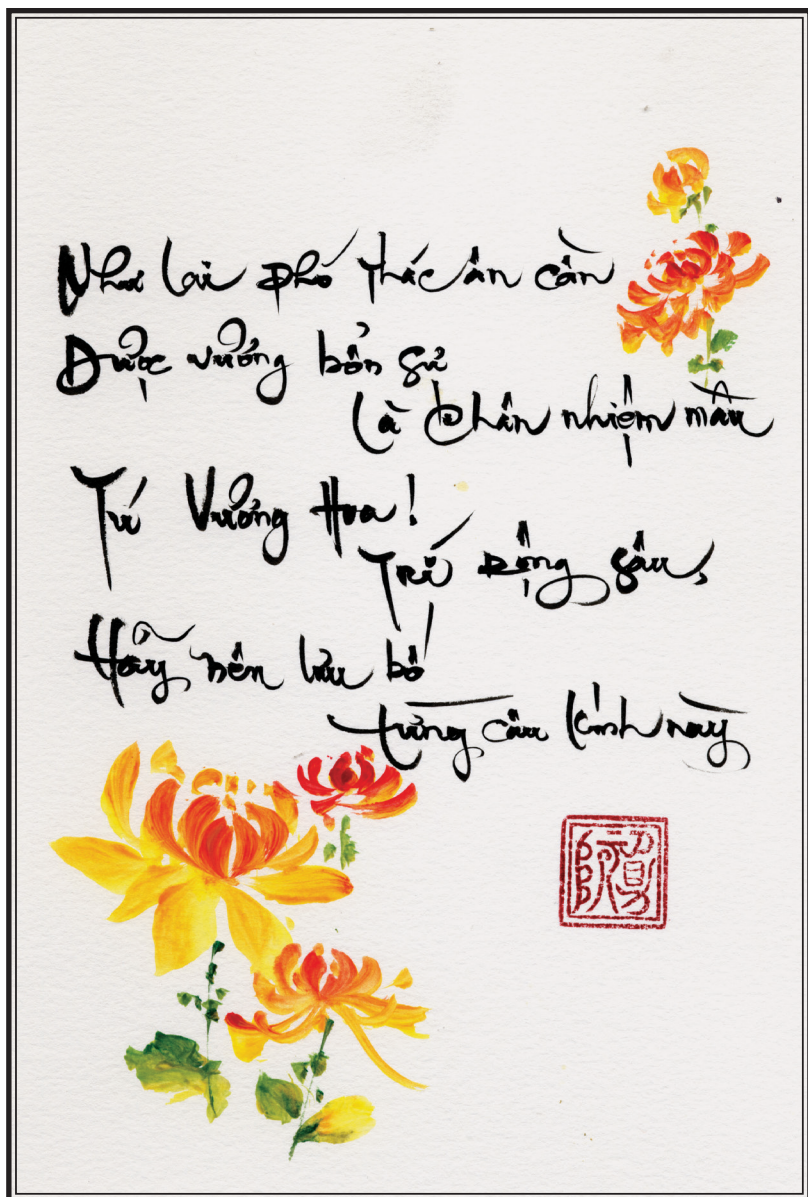 Như Lai phó thác ân cần
Dược vương bổn sự
Là Chân nhiệm mầu
Tú Vương Hoa!
Trí rộng sâu,
Hãy nên lưu bố
từng câu kinh này